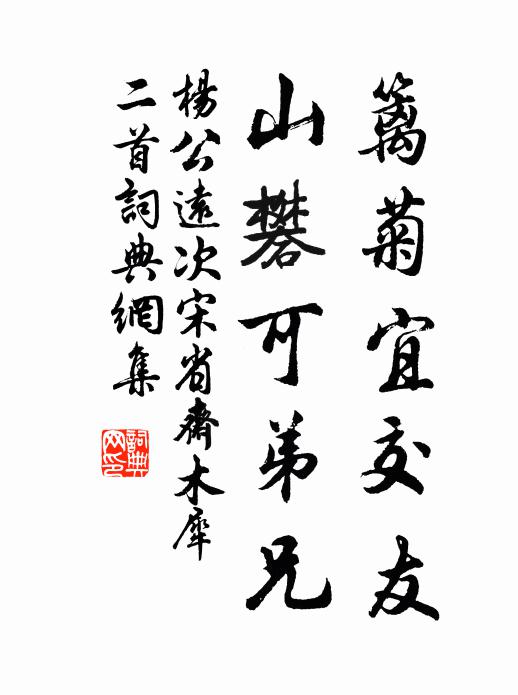 籬菊宜交友
山礬可弟兄
楊公遠次宋省齋木犀
二首詞典網集
詞典網印